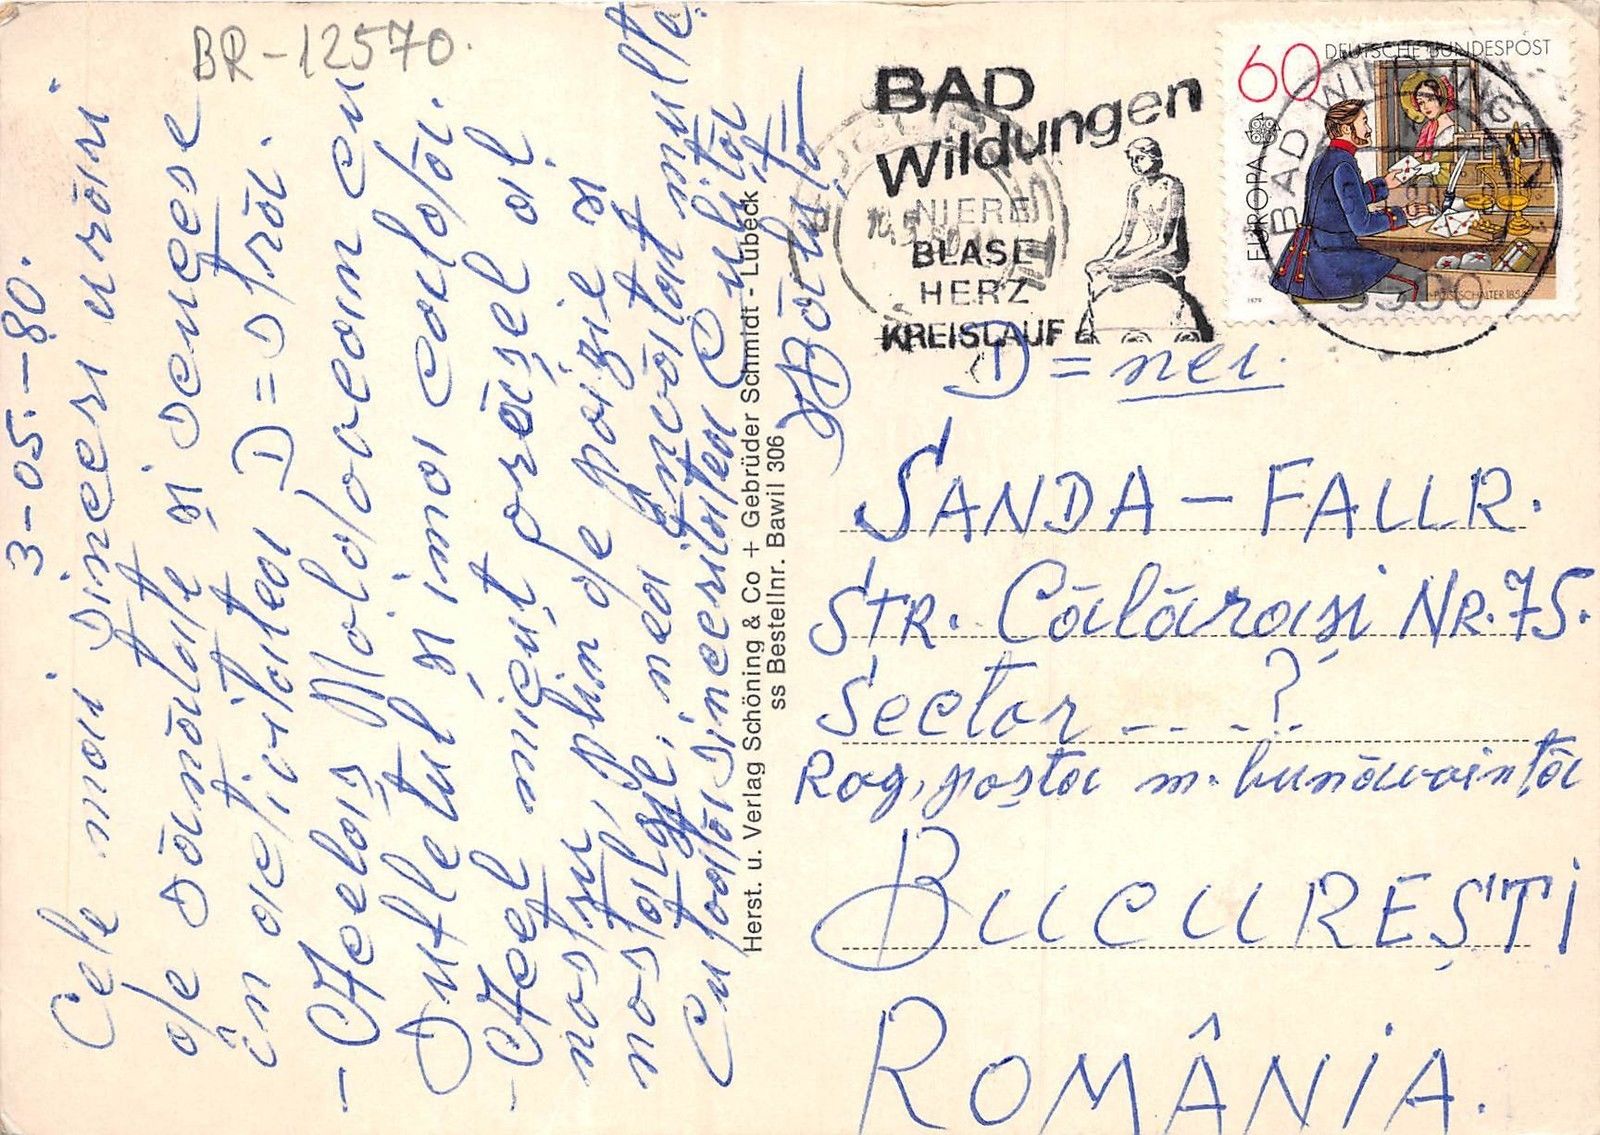 BR-12570.
3-05.-80.
Cele mai sincere urări
de sănătate și
în activitatea D=strā.
- Acelaș Moldovean cu
sufletul și
- Acel micuț orășel al
nostru, plin de poizie și
nostalgie,
Cu toată sinceritatea
Herst. u. Verlag Schöning & Co + Gebrüder Schmidt - Lübeck
ss Bestellnr. Bawil 306
BAD
Wildungen
NIERE
BLASE
HERZ
KREISLAUF
60
DEUTSCHE BUNDESPOST
EUROPA
1979
POSTSCHALTER 1854
BAD WILDUNGEN
D = nei.
SANDA - FALLR.
STR. Călărași NR. 75.
Sector -- - -?
Rog, poșta m. bunăvoință
BUCUREȘTI
ROMÂNIA.